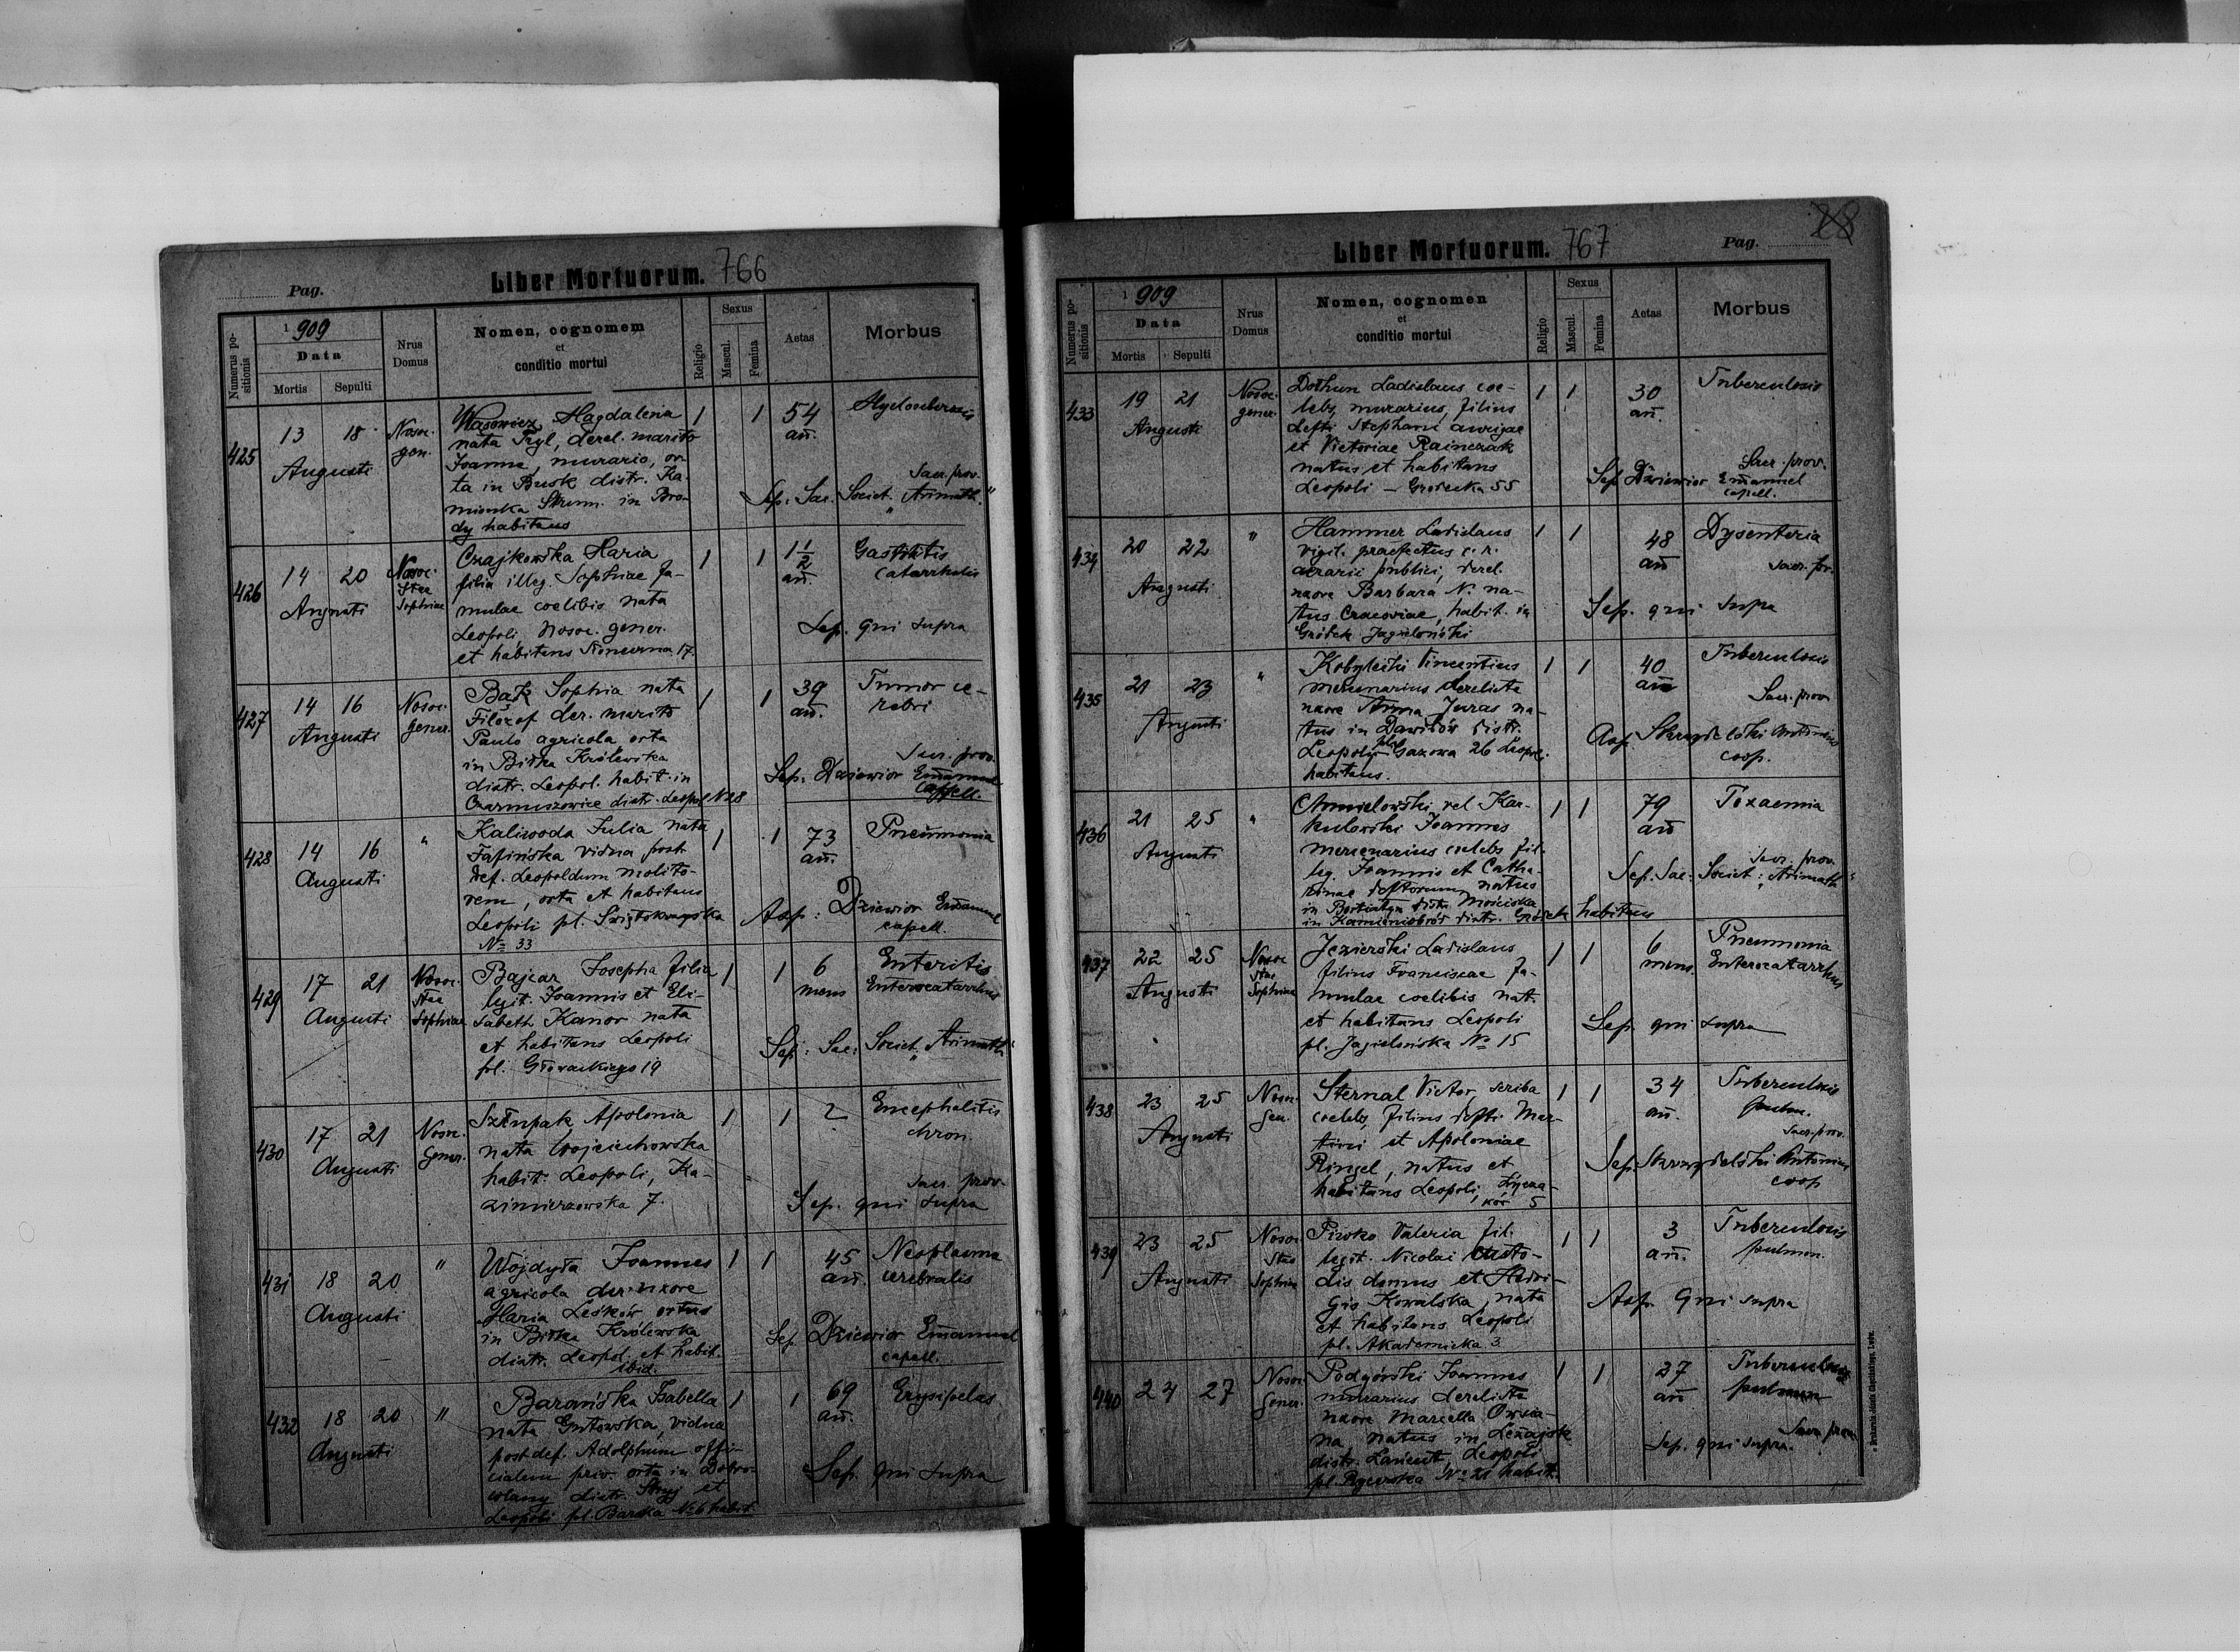 Pag.
Liber Mortuorum. 766
Numerus positionis
1 909
Data
Mortis
Sepulti
Nrus Domus
Nomen, cognomem
et
conditio mortui
Religio
Sexus
Mascul.
Femina
Aetas
Morbus
425
13 18
Augusti
Nosoc.
gen.
Wąsowicz Magdalena
nata Ryl, derel. marito
Joanne, murario, or
ta in Busk distr. Ka-
mionka Strum. in Bro-
dy habitans
1 1
54
an.
Sacr. prov.
Sep. Sac. Societ. "Arimath."
426
14 20
Augusti
Nosoc.
Stae
Sophiae
Czajkowska Maria
filia illeg. Sophiae fa-
mulae coelibis nata
Leopoli, Nosoc. gener.
et habitans Słoneczna 17.
1 1
1 1/2
an.
Gastritis
catarrhalis
Sep. qui supra
427
14 16
Augusti
Nosoc.
gener.
Bąk Sophia nata
Filozof der. marito
Paulo agricola orta
in Biłka Królewska
distr. Leopol. habit. in
Czarnuszowice distr. Leopol N 28
1 1
39
an.
Tumor ce-
rebri
Sacr. prov.
Sep. Dziewior Emanuel
Capell.
428
14 16
Augusti
"
Kaliwoda Julia nata
Tafińska vidua post
def. Leopoldum molito-
rem, orta et habitans
Leopoli pl. Świętokrzyska
No 33
1 1
73
an.
Pneumonia
Asp: Dziewior Emanuel
capell.
429
17 21
Augusti
Nosoc.
Stae
Sophiae
Bajcar Josepha filia
legit. Joannis et Eli-
sabeth Kanor nata
et habitans Leopoli
pl. Głowackiego 19
1 1
6
mens
Enteritis
Enterocatarrhus
Sep: Sac: Societ. "Arimath"
430
17 21
Augusti
Nosoc.
Gener.
Szłupak Apolonia
nata Wojciechowska
habit. Leopoli, Ka-
zimierzowska 7.
1 1
?
Encephalitis
chron.
Sacr. prov.
Sep. qui supra
431
18 20
Augusti
"
Wojdyła Joannes
agricola der. uxore
Maria Leśków ortus
in Biłka Królewska
distr. Leopol. et habit.
ibid.
1 1
45
an.
Neoplasma
cerebralis
Sep. Dziewior Emanuel
capell.
432
18 20
Augusti
"
Barańska Isabella
nata Gutowska, vidua
post def. Adolphum offi-
cialem priv. orta in Dobro-
wlany distr. Stryj et
Leopoli pl. Barska No 6 habit
1 1
69
an.
Erysipelas
Sep. qui supra
Liber Mortuorum. 767
Pag. 28
Numerus positionis
1 909
Data
Mortis
Sepulti
Nrus Domus
Nomen, cognomen
et
conditio mortui
Religio
Sexus
Mascul.
Femina
Aetas
Morbus
433
19 21
Augusti
Nosoc.
gener.
Ladislaus coe-
lebs, murarius, filius
defti Stephani aurigae
et Victoriae Rainczak
natus et habitans
Leopoli - Grodecka 55
1 1
30
an.
Tuberculosis
Sacr. prov.
Sep. Dziewior Emanuel
capell.
434
20 22
Augusti
"
Hammer Ladislaus
vigil. praefectus c. r.
aerarii publici, derel.
uxore Barbara N. na-
tus Cracoviae, habit. in
Gródek Jagieloński
1 1
48
an
Dysenteria
sacr. pr.
Sep. qui supra
435
21 23
Augusti
"
Kobylecki Vincentius
mercenarius derelicta
uxore Anna Juras na-
tus in Dawidów distr.
Leopoli, pl. Gazowa 26 Leopol.
habitans.
1 1
40
an
Tuberculosis
Sacr. prov.
Asp. Antonius
coop.
436
21 25
Augusti
"
Chmielowski vel Kar-
kulowski Joannes
mercenarius coelebs fil.
leg. Joannis et Catha-
rinae deftorum natus
in distr. Mościska
in Kamieniobród distr. Gródek habitans
1 1
79
an
Toxaemia
Sacr. prov.
Sep. Sac: Societ: "Arimath"
437
22 25
Augusti
Nosoc
Stae
Sophiae
Jezierski Ladislaus
filius Franciscae fa-
mulae coelibis nat.
et habitans Leopoli
pl. Jagielońska No 15
1 1
6
mens.
Pneumonia
Enterocatarrhus
Sep. qui supra
438
23 25
Augusti
Nosoc.
Gen.
Sternal Victor, scriba
coelebs, filius defti Mar-
tini et Apoloniae
Ringel, natus et
habitans Leopoli, Łycza-
ków 5
1 1
34
an.
Tuberculosis
pulm.
Sacr. prov.
Sep. Antonius
coop
439
23 25
Augusti
Nosoc
Stae
Sophiae
Piwko Valeria fil.
legit. Nicolai custo-
dis domus et Hedvi-
gis Kowalska, nata
et habitans Leopoli
pl. Akademicka 3
1 1
3
an.
Tuberculosis
pulmon.
Asp. qui supra
440
24 27
Nosoc
Gener.
Podgórski Joannes
murarius derelicta
uxore Marcella Owsia-
na natus in Leżajsk
distr. Łańcut, Leopoli
pl. No 21 habit.
1 1
27
an
Tuberculosis
pulmon
Sacr. prov
Sep. qui supra.